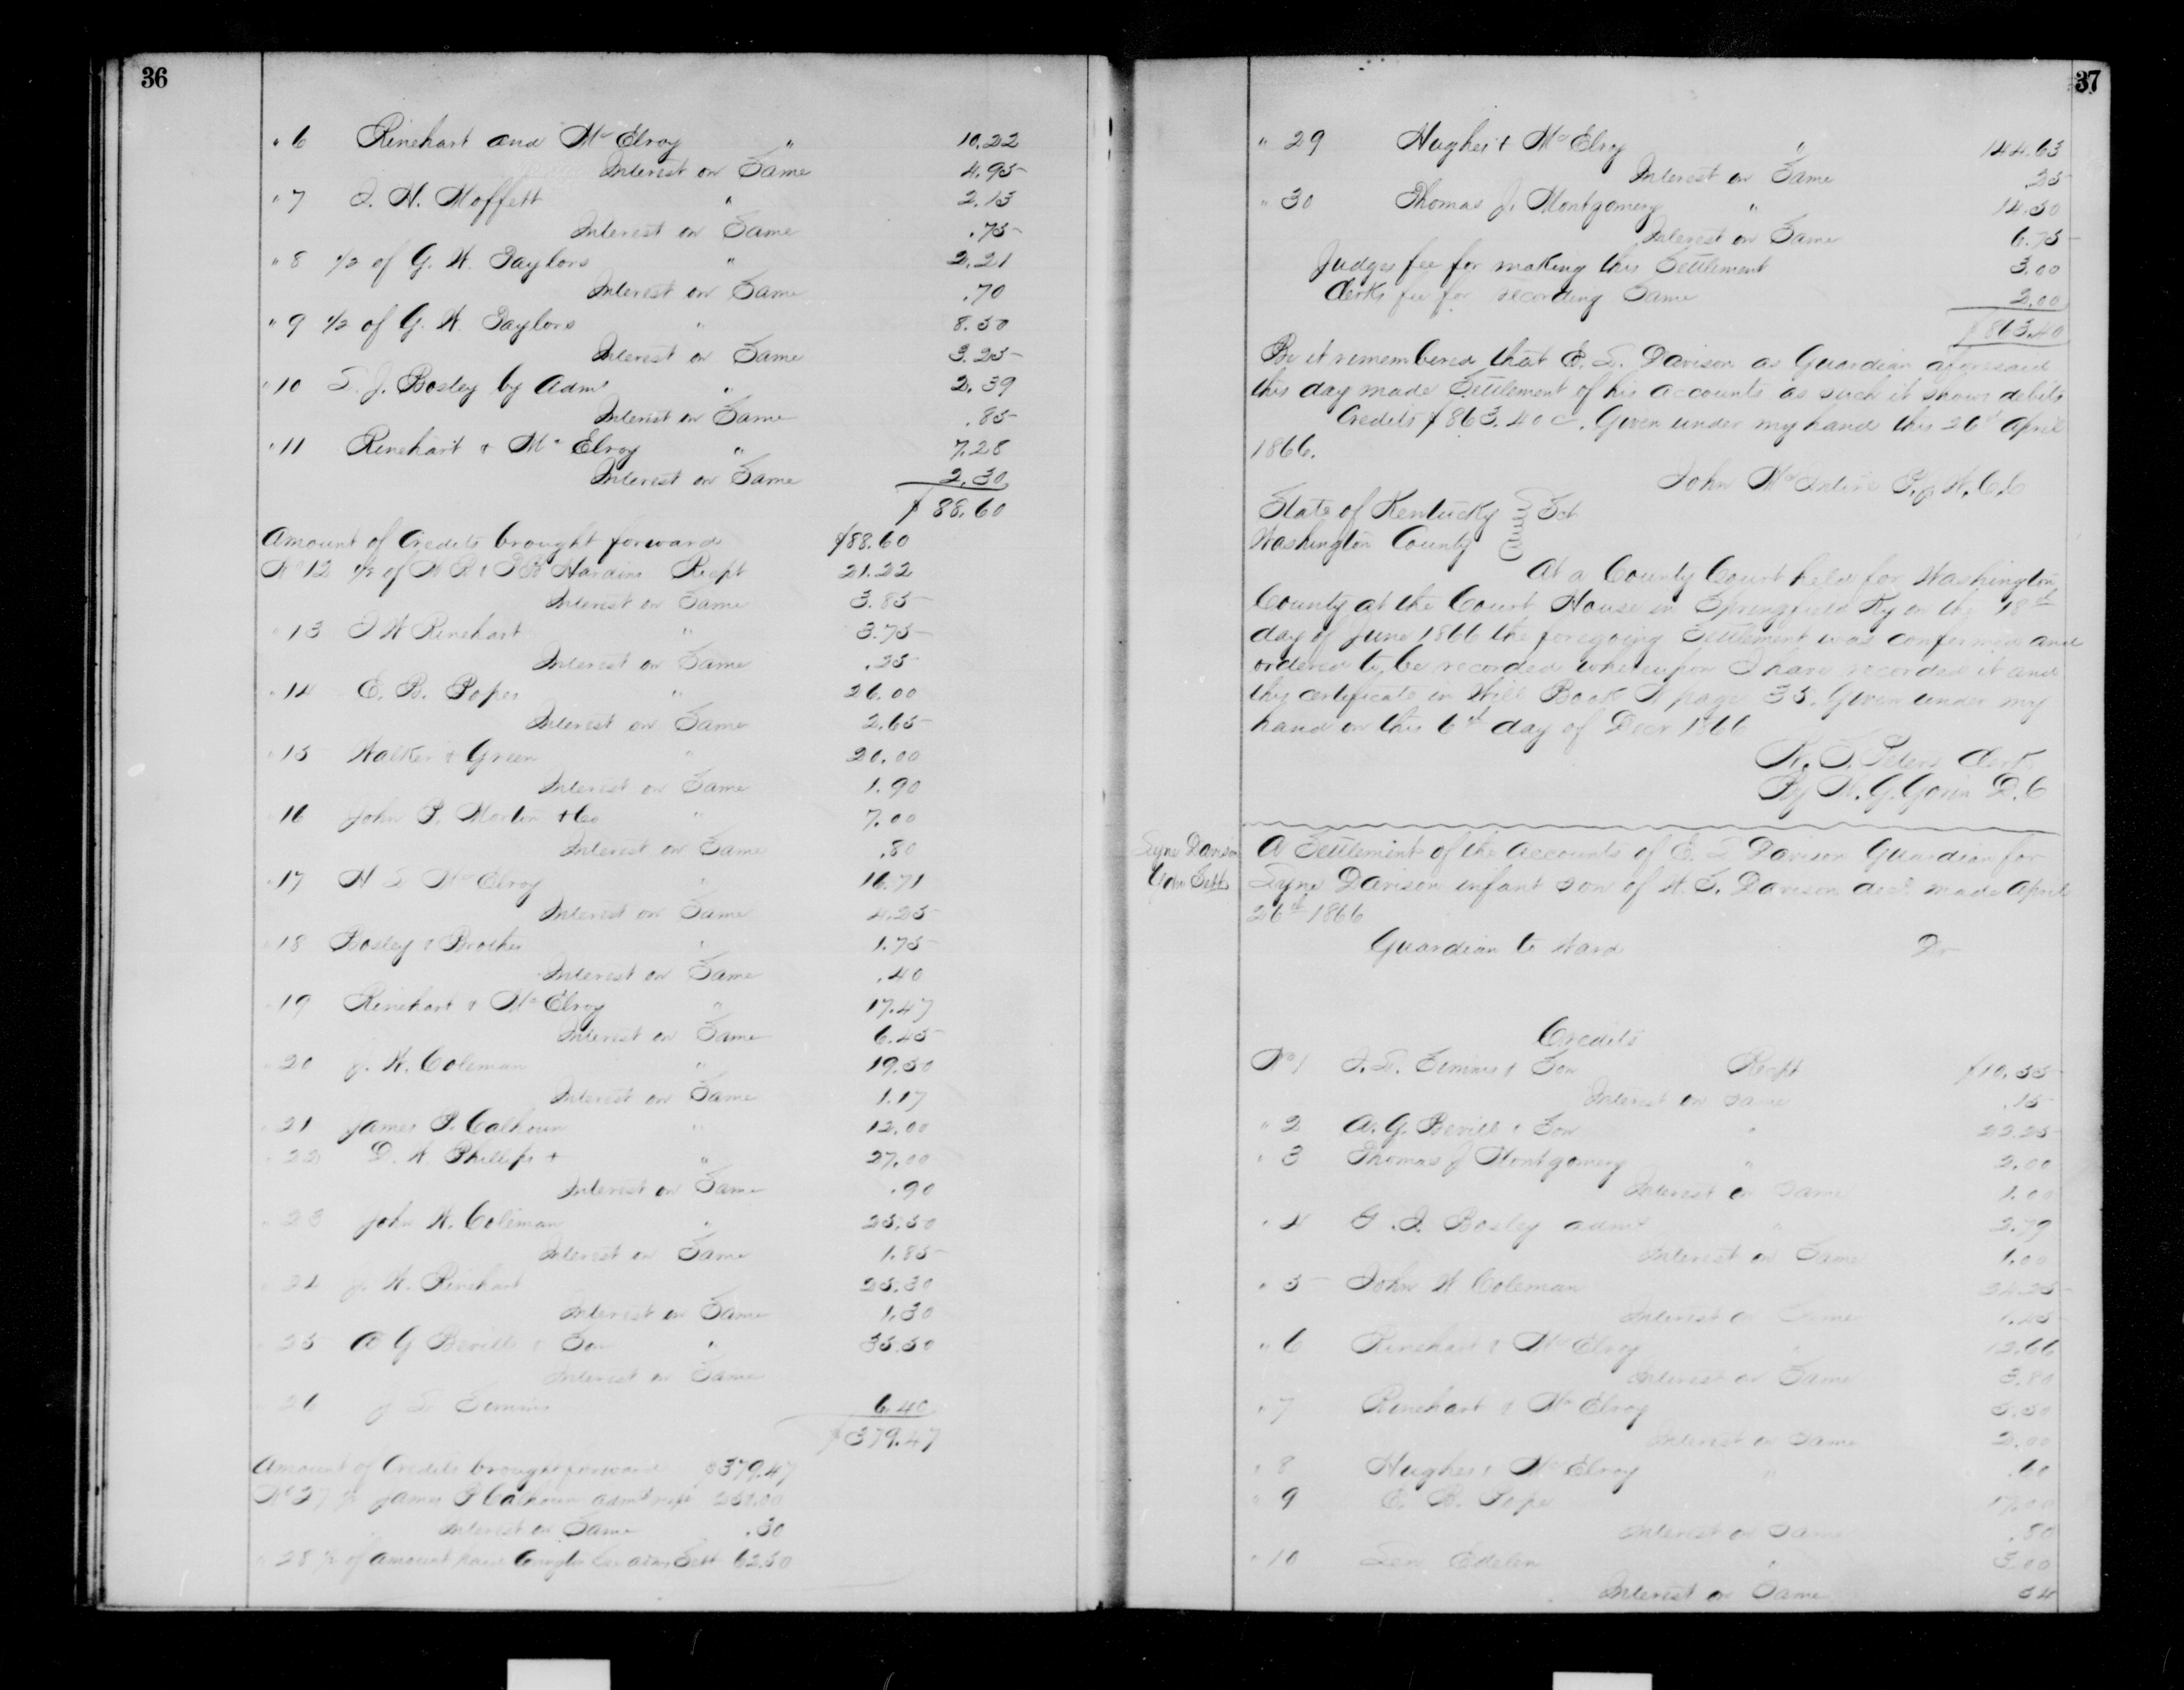 36
" 6 Rinehart and McElroy " 10.22
Interest on Same 4.95
" 7 J. H. Moffett " 2.15
Interest on Same .75
" 8 1/2 of G. W. Taylors " 2.21
Interest on Same .70
" 9 1/2 of G. W. Taylors " 8.50
Interest on Same 3.25
" 10 S. J. Bosley by Admr " 2.39
Interest on Same .85
" 11 Rinehart & McElroy " 7.28
Interest on Same 2.30
$88.60
Amount of Credits brought forward $88.60
No 12 1/2 of Hardins Recpt 21.22
Interest on Same 3.85
" 13 J W Rinehart " 3.75
Interest on Same .25
" 14 E. B. Popes " 26.00
Interest on Same 2.65
" 15 Walker & Green " 20.00
Interest on Same 1.90
" 16 John P. Morton & Co " 7.00
Interest on Same .80
" 17 H S McElroy " 16.71
Interest on Same 4.25
" 18 Bosley & Brother " 1.75
Interest on Same .40
" 19 Rinehart & McElroy " 17.47
Interest on Same 6.45
" 20 J. W. Coleman " 19.50
Interest on Same 1.17
" 21 James P. Calhoun " 12.00
" 22 D. W. Phillips + " 27.00
Interest on Same .90
" 23 John W. Coleman " 25.50
Interest on Same 1.85
" 24 J. W. Rinehart 25.30
Interest on Same 1.30
" 25 A G Bevill & Son " 35.50
Interest on Same
" 26 J S Simms 6.40
$379.47
Amount of Credits brought forward $379.47
No 27 James P Calhoun admr recpt
Interest on Same .30
" 28 1/2 of amount Sett 62.50
37
" 29 Hughes & McElroy " 144.63
Interest on Same .25
" 30 Thomas J. Montgomery " 14.50
Interest on Same 6.75
Judges fee for making this Settlement 3.00
Clerks fee for recording Same 2.00
$863.40
Be it remembered that E. L. Davison as Guardian aforesaid
this day made Settlement of his accounts as such it shows debits
Credits $863.40 c. Given under my hand this 26th April
1866.
John McIntire P.J.W.C.C
State of Kentucky } Sct
Washington County
At a County Court held for Washington
County at the Court House in Springfield Ky on the 18th
day of June 1866 the foregoing Settlement was confirmed and
ordered to be recorded whereupon I have recorded it and
this certificate in Will Book page 35. Given under my
hand on this 6th day of Decr 1866
Peters Clerk
By W. G. Gorin D.C
Syne Davison
Gdn Sett
A Settlement of the accounts of E. L Davison Guardian for
Syne Davison infant son of H. S. Davison decd made April
26th 1866
Guardian to Ward Dr
Credits
No 1 J. S. Simms & Son Recpt $10.55
Interest on same .15
" 2 A. G. Bevill & Son " 22.25
" 3 Thomas J Montgomery " 2.00
Interest on Same 1.00
" 4 Bosley admr " 2.79
Interest on Same 1.00
" 5 John W Coleman 24.25
Interest on Same 1.45
" 6 Rinehart & McElroy " 12.66
Interest on Same 3.80
" 7 Rinehart & McElroy 5.50
Interest on Same 2.00
" 8 Hughes & McElroy " .60
" 9 E. B. Pope 17.00
Interest on Same .80
" 10 Edelen " 3.00
Interest on Same 54